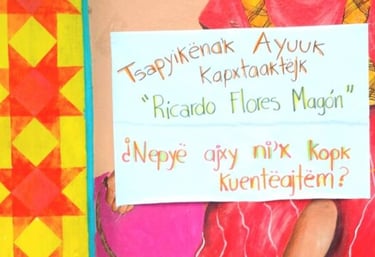 Tsapyïkëna'k Ayuuk
Kapxtaaktëjk
"Ricardo Flores Magón"
¿Nepyë ajxy ni'x kopk
kuentëajtëm?